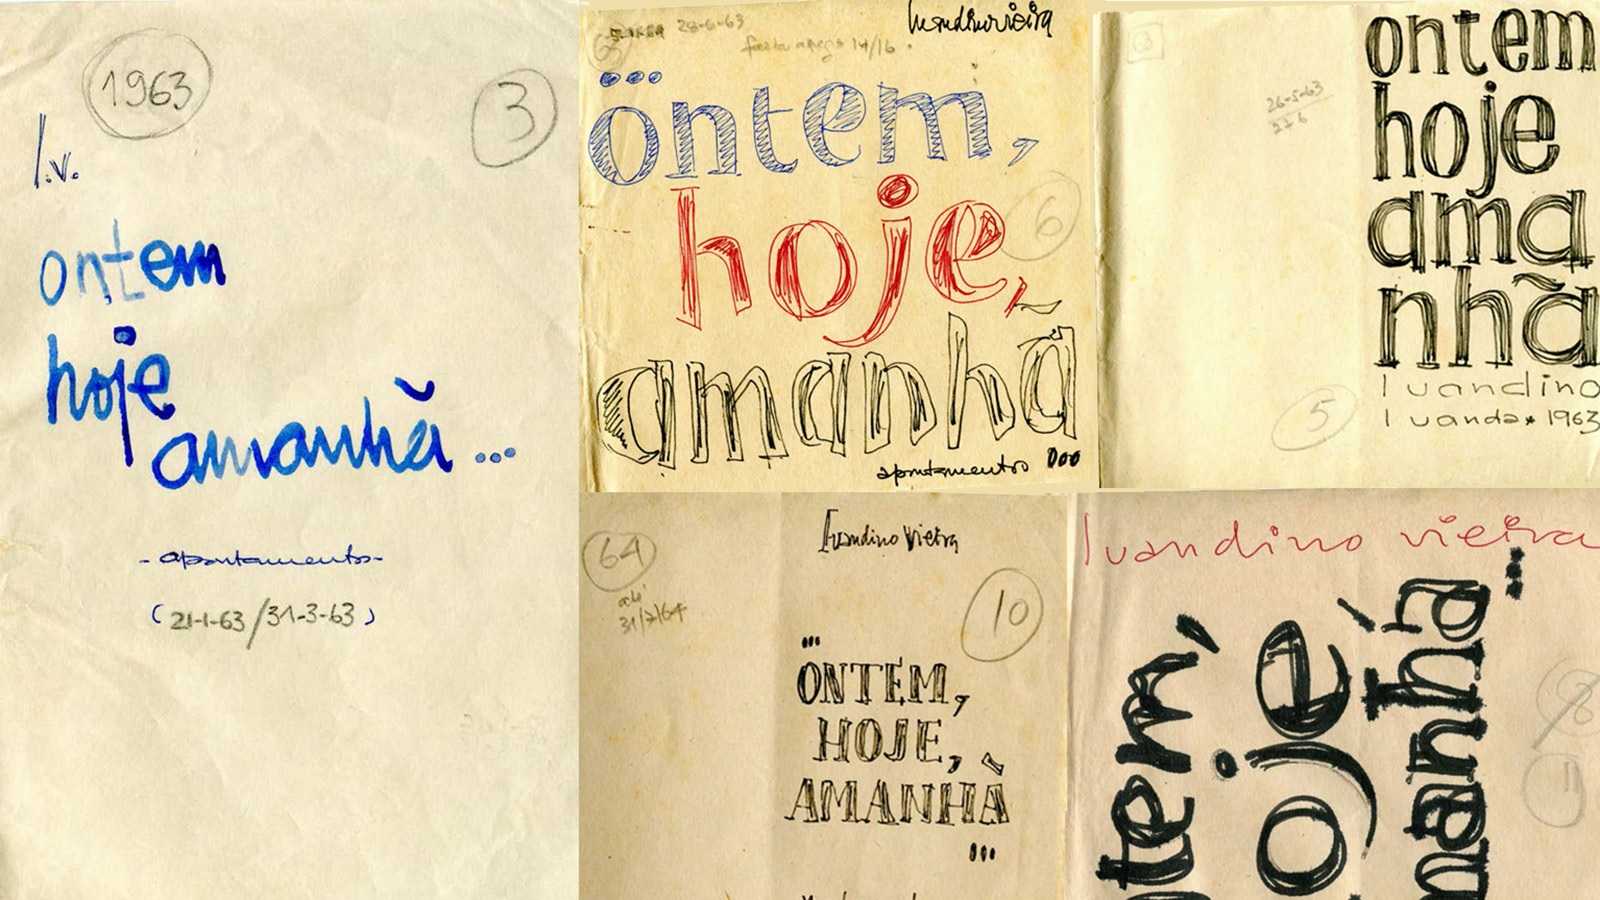 1963
3
l.v.
ontem
hoje
amanhã...
- apontamentos -
(21-1-63/31-3-63)
28-6-63
14/16
luandinovieira
...
ontem,
hoje,
amanhã
6
apontamentos ...
3
26-5-63
ontem
hoje
ama
nhã
luandino
luanda * 1963
5
64
luandino vieira
31/7/64
10
...
ONTEM,
HOJE,
AMANHÃ
...
luandino vieira
tem,
oje
manhã...